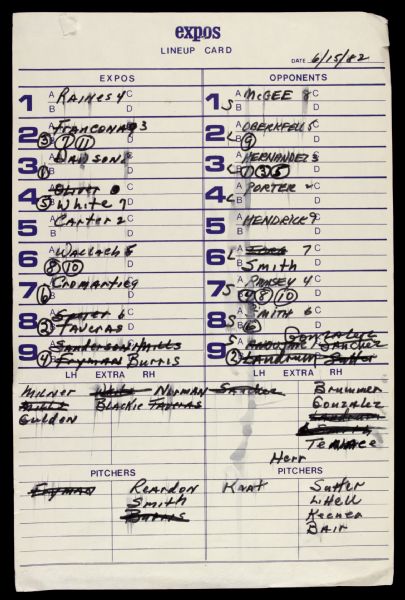 expos
LINEUP CARD
DATE 6/15/82
EXPOS OPPONENTS
1 A B RAINES 4 C D
2 A B FRANCONA 3 C D
3 7 11
3 A B DAWSON 8 C D
1
4 A B OLIVER C D
5 White 7
5 A B Carter 2 C D
6 A B Wallach 5 C D
8 10
7 A B CROMARTIE 9 C D
6
8 A B Speier 6 C D
2 TAVERAS
9 A B Sanderson Mills C D
4 Fryman BURRIS
1 S A B McGEE 8 C D
2 L A B OBERKFELL 5 C D
9
3 L A B HERNANDEZ 3 C D
1 3 5
4 L A B PORTER 2 C D
5 A B HENDRICK 9 C D
6 L A B 7 C D
Smith
7 S A B RAMSEY 4 C D
4 8 10
8 S A B SMITH 6 C D
6
GONZALEZ
9 S A B ANDUJAR Sanchez C D
2 Landrum Sutter
LH EXTRA RH
MILNER White NORMAN
Mills BLACKIE TAVERAS
Guldon
LH EXTRA RH
Sanchez Brummer
Gonzalez
Landrum
Smith
Tenace
Herr
PITCHERS
Fryman REARDON
Smith
BURRIS
PITCHERS
KAAT Sutter
LiHell
Keener
BAIR